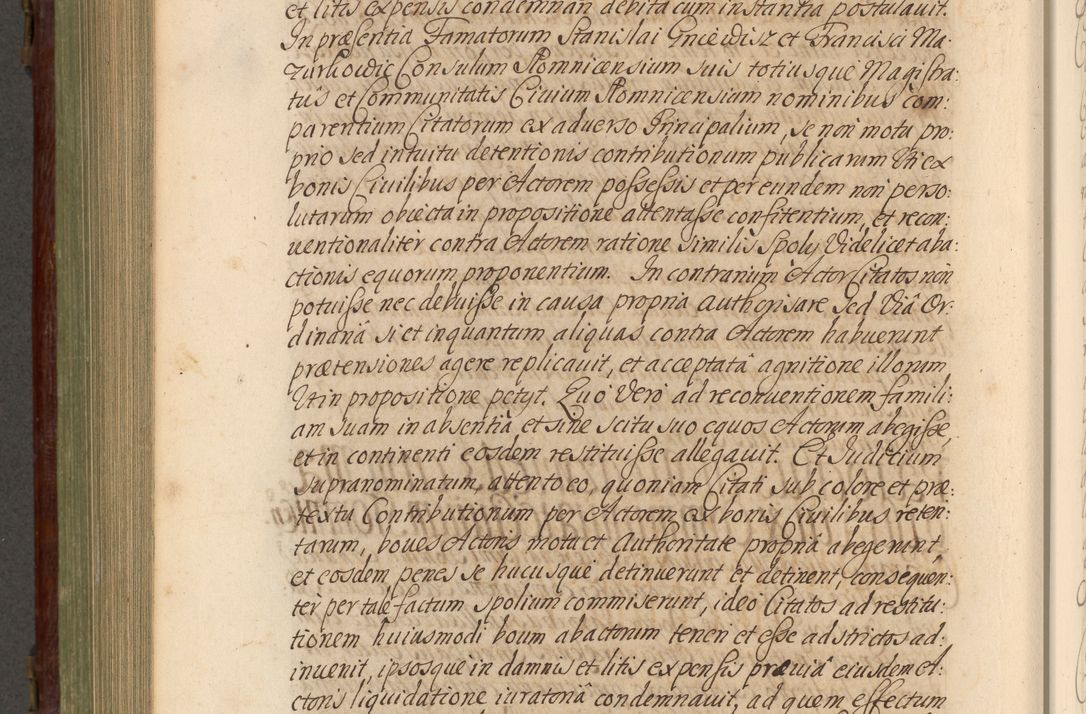 et litis expensis condemnari debita cum instantia postulavit.
In præsentia Famatorum Stanislai Gniewisz et Francisci Ma-
zurkowic Consulum Slomnicensium suis totiusque Magistra:
tûs et Communitatis Civium Slomnicensium nominibus com:
parentium Citatorum ex adverso Principalium, se non motu pro:
prio sed intuitu detentionis contributionum publicarum Uti ex
bonis Civilibus per Actorem possessis et per eundem non perso:
lutarum obiecta in propositione attentasse confitentium, et recon:
uentionaliter contra Actorem ratione similis Spolij Videlicet aba:
ctionis equorum proponentium. In contrarium Actor Citatos non
potuisse nec debuisse in causa propria authorisare sed Viâ Or-
dinariâ si et inquantum aliquas contra Actorem habuerunt
prætensiones agere replicauit, et acceptatâ agnitione illorum
Ut in propositione petyt. Quo Vero ad reconuentionem famili:
am suam in absentiâ et sine scitu suo equos Actorum abegisse,
et in continenti eosdem restituisse allegauit. Et Iuditium
supranominatum, attento eo, quoniam Citati sub colore et præ:
textu Contributionum per Actorem ex bonis Civilibus reten:
tarum, boues Actoris motu et Authoritate propriâ abegerunt
et eosdem penes se hucusque detinuerunt et detinent, consequen:
ter per tale factum spolium commiserunt, ideo Citatos ad restitu:
tionem huiusmodi boum abactorum teneri et esse adstrictos ad:
inuenit, ipsosque in damnis et litis expensis præuiâ eiusdem A:
ctoris liquidatione iuratoriâ condemnauit, ad quem effectum